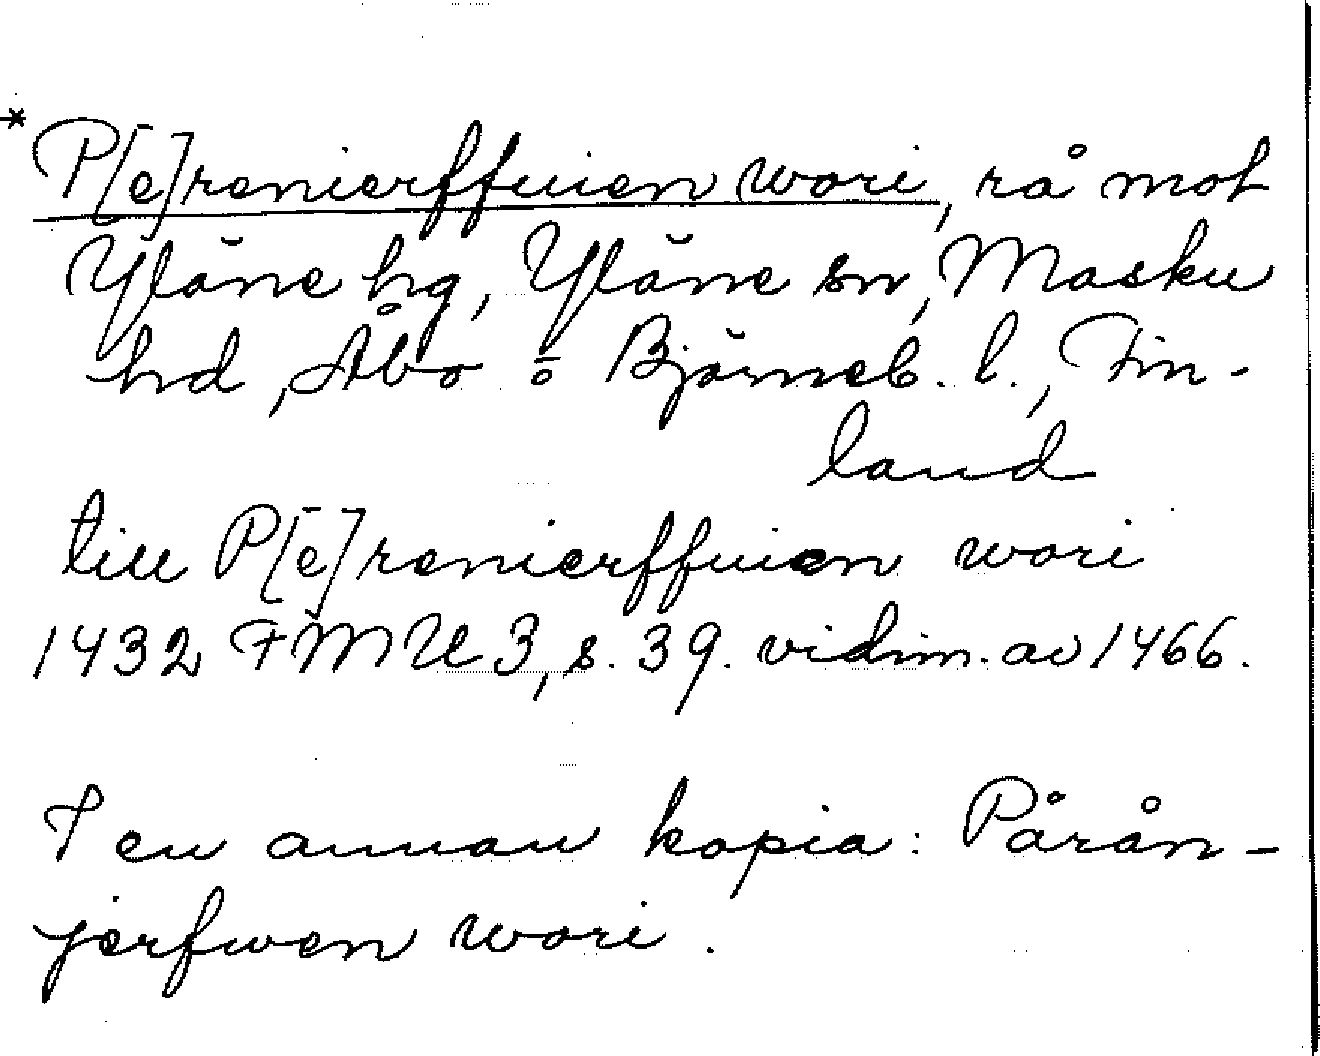 * P[e]renierffuien wori, rå mot
Yläne hg, Yläne sn, Masku
hd, Åbo o Björneb. l., Fin-
land
till P[e]renierffuien wori
1432 FMU 3, s. 39. vidim. av 1466.
I en annan kopia: Pårån-
jerfwen wori.